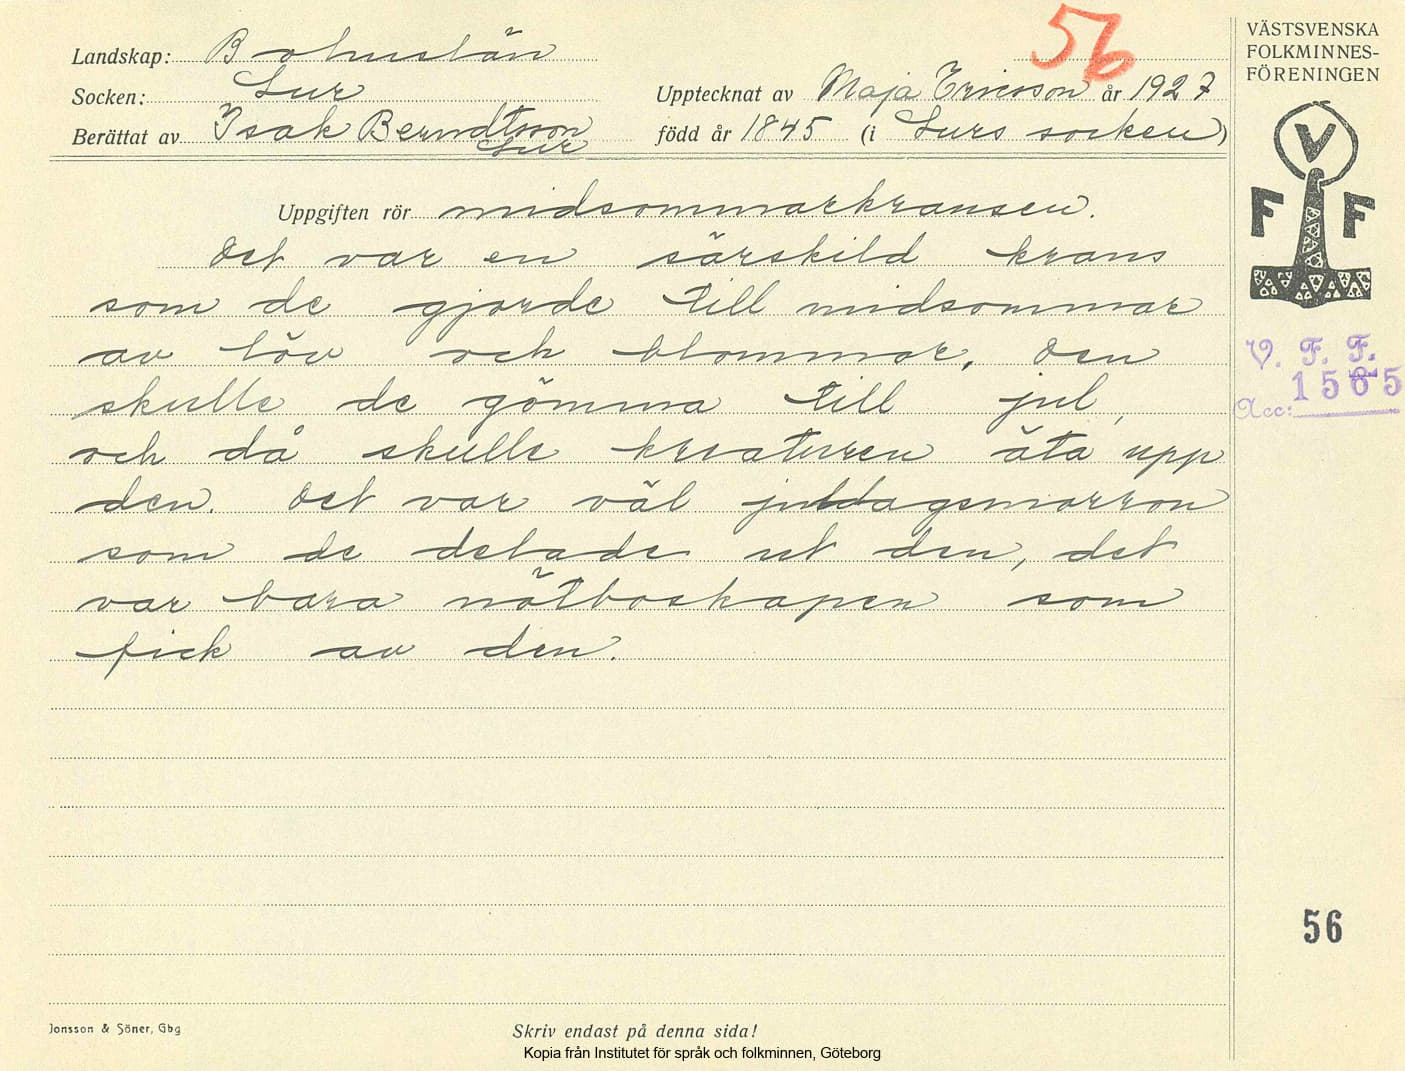 56
VÄSTSVENSKA
FOLKMINNES-
FÖRENINGEN
Landskap: Bohuslän
Socken: Lur
Upptecknat av Maja Ericsson år 1927
Berättat av Isak Berndtsson
Lur
född år 1845 (i Lurs socken)
V
F F
Uppgiften rör midsommarkransen.
Det var en särskild krans
som de gjorde till midsommar
av löv och blommor. Den
skulle de gömma till jul,
och då skulle kreaturen äta upp
den. Det var väl juldagsmorron
som de delade ut den, det
var bara nötboskapen som
fick av den.
V. F. F.
1565
Acc:
56
Jonsson & Söner, Gbg
Skriv endast på denna sida!
Kopia från Institutet för språk och folkminnen, Göteborg